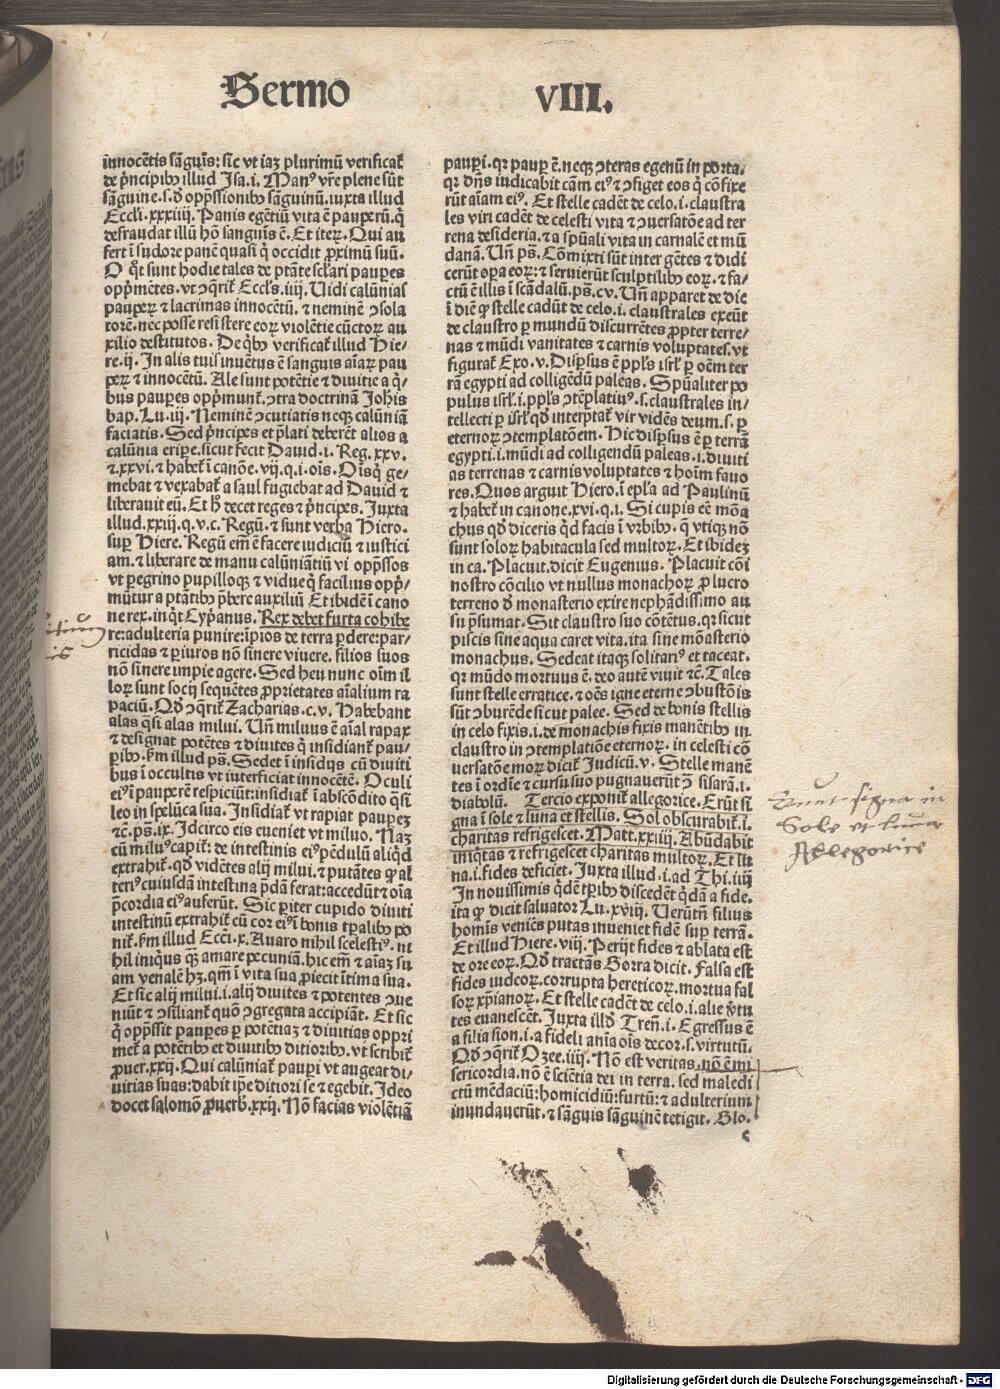 Sermo VIII.
innocētis sāguīs: sic vt iaꝫ plurimū verificaƭ
de p̄ncipibꝰ illud Isa.i. Manꝰ vr̄e plene sūt
sāguine.s.d̄ opp̄ssionibꝰ sāguinū.iuxta illud
Eccli.xxxiiij. Panis egētiū vita ē pauperū.q̄
defraudat illū hō sanguīs ē. Et iteꝝ. Qui au
fert ī sudore panē quasi q̄ occidit ꝓximū suū.
O q̄t sunt hodie tales de ptāte sclari paupes
opp̄mētes.vt ↄq̄rit̄ Eccl's.iiij. Uidi calūnias
paupeꝝ ⁊ lacrimas innocētū. ⁊ neminē ↄsola
torē.nec posse resistere eoꝝ violētie cūctoꝝ au
xilio destitutos. De q̄bꝰ verificat̄ illud Hie/
re.ij. In alis tuis inuētus ē sanguis aīaꝝ pau
peꝝ ⁊ innocētū. Ale sunt potētie ⁊ diuitie a q̄/
bus paupes opp̄munt̄.ↄtra doctrinā Johis
bap. Lu.iij. Neminē ↄcutiatis neqꝫ calūniā
faciatis. Sed p̄ncipes et p̄lati deberēt alios a
calūnia eripe.sicut fecit Dauid.i. Reg.xxv.
⁊.xxvi.⁊ habet̄ ī canōe.vij.q.i.ois. Oīsq̄ ge/
mebat ⁊ vexabat̄ a saul fugiebat ad Dauid ⁊
liberauit eū. Et h̄ decet reges ⁊ p̄ncipes. Juxta
illud.xxiij.q.v.c. Regū.⁊ sunt verba Hiero.
sup Hiere. Regū em̄ ē facere iudiciū ⁊ iustici
am.⁊ liberare de manu calūniātiū vi opp̄ssos
vt pegrino pupilloqꝫ ⁊ vidue q̄ facilius opp̄/
mūtur a ptātibꝰ p̄bere auxiliū Et ibidē ī cano
ne rex.in q̄t Cyp̄anus. Rex debet furta cohibe
re:adulteria punire:īpios de terra pdere:par/
ricidas ⁊ piuros nō sinere viuere. filios suos
nō sinere impie agere. Sed heu nunc oīm il
loꝝ sunt socij sequētes ꝓprietates aīalium ra
paciū. Qd̄ ↄq̄rit̄ Zacharias.c.v. Habebant
alas q̄si alas milui. Un̄ miluus ē aīal rapax
⁊ designat potētes ⁊ diuites q̄ insidiant̄ pau/
pibꝰ.ẜm illud ps. Sedet ī insidijs cū diuiti
bus ī occultis vt iuterficiat innocētē. Oculi
eiꝰ ī pauperē respiciūt:insidiat̄ ī abscōdito q̄si
leo in spelūca sua. Insidiat̄ vt rapiat paupeꝫ
⁊c. ps.ix. Jdcirco eis eueniet vt miluo. Naꝫ
cū miluꝰ capit̄: de intestinis eiꝰ pēdulū aliq̄d
extrahit̄. qd̄ vidētes alij milui. ⁊ putātes ꝙ al
teriꝰ cuiusdā intestina p̄dā ferat:accedūt ⁊ oīa
p̄cordia eiꝰ auferūt. Sic piter cupido diuiti
intestinū extrahit̄ cū cor eiꝰ ī bonis tpalibꝰ po
nit̄.ẜm illud Eccī.x. Auaro nihil scelestiꝰ. ni
hil iniq̄us q̄ꝫ amare pecuniā.hic em̄ ⁊ aīaꝫ su
am venalē hꝫ.qm̄ ī vita sua ꝓiecit ītima sua.
Et sic alij milui.i.alij diuites ⁊ potentes ↄue
niūt ⁊ ↄsiliant̄ quō ↄgregata accipiāt. Et sic
q̄ opp̄ssit paupes p potētiaꝫ ⁊ diuitias oppri
met̄ a potētibꝰ et diuitibꝰ ditioribꝰ.vt scribit̄
ꝓuer.xxij. Qui calūniat̄ paupi vt augeat di/
uitias suas:dabit ip̄e ditiori se ⁊ egebit. Jdeo
docet salomō ꝓuerb.xxij. Nō facias violētiā
paupi.qr paup ē.neqꝫ ↄteras egenū in porta/
qr dn̄s iudicabit cām eiꝰ ⁊ ↄfiget eos q̄ cōfixe
rūt aīam eiꝰ. Et stelle cadēt de celo.i.claustra
les viri cadēt de celesti vita ⁊ ↄuersatōe ad ter
rena desideria.⁊ a spūali vita in carnalē et mū
danā. Un̄ ps. Cōmixti sūt inter gētes ⁊ didi
cerūt opa eoꝝ:⁊ seruierūt sculptilibꝰ eoꝝ. ⁊ fa/
ctū ē illis ī scādalū.ps.cv. Un̄ apparet de die
ī diē ꝙ stelle cadūt de celo.i.claustrales exeūt
de claustro p mundū discurrētes ꝓpter terre/
nas ⁊ mūdi vanitates ⁊ carnis voluptates.vt
figurat̄ Exo.v. Dispsus ē ppl's isrl' p oēm ter
rā egypti ad colligēdū paleas. Spūaliter po
pulus isrl'.i.ppl's ↄtēplatiuꝰ.s.claustrales in/
tellecti p isrl' qd̄ interptat̄ vir vidēs deum.s.p
eternoꝝ ↄtemplatōem. Hic dispsus ē p terrā
egypti.i.mūdi ad colligendū paleas.i.diuiti
as terrenas ⁊ carnis voluptates ⁊ hoīm fauo
res. Quos arguit Hiero.ī epl'a ad Paulinū
⁊ habet̄ in canone.xvi.q.i. Si cupis eē mōa
chus qd̄ diceris q̄d facis ī vrbibꝰ. q̄ vtiqꝫ nō
sunt soloꝝ habitacula sed multoꝝ. Et ibideꝫ
in ca. Placuit.dicit Eugenius. Placuit cōi
nostro cōcilio vt nullus monachoꝝ ꝓ lucro
terreno d̄ monasterio exire nephādissimo au
su p̄sumat. Sit claustro suo cōtētus.qr sicut
piscis sine aqua caret vita.ita sine mōasterio
monachus. Sedeat itaqꝫ solitariꝰ et taceat.
qr mūdo mortuus ē. deo autē viuit ⁊c. Tales
sunt stelle erratice. ⁊ oēs igne eterne ↄbustōis
sūt ↄburēde sicut palee. Sed de bonis stellis
in celo fixis.i.de monachis fixis manētibꝰ in
claustro in ↄtemplatiōe eternoꝝ. in celesti cō
uersatōe moꝝ dicit̄ Judicū.v. Stelle manē
tes ī ordīe ⁊ cursu suo pugnauerūt ↄ̄ sisarā.i.
diabolū. Tercio exponit̄ allegorice. Erūt si
gna ī sole ⁊ luna et stellis. Sol obscurabit̄.i.
charitas refrigescet. Matt.xxiiij. Abūdabit
iniq̄tas ⁊ refrigescet charitas multoꝝ. Et lu
na.i.fides deficiet. Juxta illud.i.ad Thi.iiij
In nouissimis q̄dē tpibꝰ discedēt q̄dā a fide.
ita ꝙ dicit saluator Lu.xviij. Uerūtn̄ filius
homīs veniēs putas inueniet fidē sup terrā.
Et illud Hiere.viij. Perijt fides ⁊ ablata est
de ore eoꝝ. Qd̄ tractās Gorra dicit. Falsa est
fides iudeoꝝ.corrupta hereticoꝝ.mortua fal
soꝝ xp̄ianoꝝ. Et stelle cadēt de celo.i.alie v̄tu
tes euanescēt. Juxta illd̄ Tren̄.i. Egressus ē
a filia sion.i.a fideli anīa oīs decor.s.virtutū.
Qd̄ ↄq̄rit̄ Ozee.iiij. Nō est veritas.nō ē mi
sericordia.nō ē sciētia dei in terra. sed maledi
ctū mēdaciū:homicidiū:furtū:⁊ adulterium
inundauerūt.⁊ sāguis sāguinē tetigit. Glo.
c
Erunt signa in
Sole et luna
Allegorice
Digitalisierung gefördert durch die Deutsche Forschungsgemeinschaft - DFG